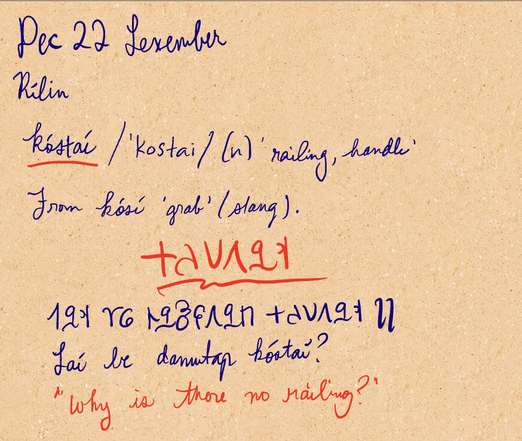 Dec 22 Lexember
Rílin
kóstaí /'kostai/ (n) 'railing, handle'
From kósí 'grab' (slang).
Laí be damutap kóstaí?
"Why is there no railing?"